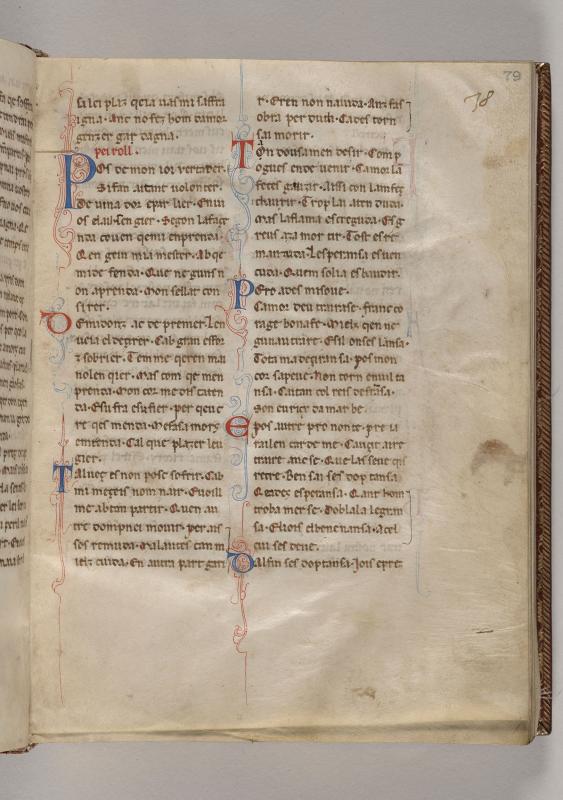 79
78
sa lei plaz qela uas mi saffra
igna. Anc no fez hom damor
genzer gar dagna.
peiroll.
POs de mon ioi uertader.
Si fan aitant uolonter.
De uina doz epar lier. Enui
os elausengier. Segon lafaiz
nda couen qemi enprenda.
Qen gein mia mester. Abqe
mi de fenda. Que negunsn
on aprenda. Mon cellar con
sirer.
DEmidonz ac de premer. Len
ueia el depirer. Cab gran effor
z sobrier. Tem me qeren mai
nolen qier. Mas com qe men
prenda. Mon cor me dis caten
da. Esufra esufier. per qeu e
re qes menda. Mefasa mors
emenda. Cal que plazer leu
gier.
Taluez es non posc sofrir. Cab
mi mezeis nom nair. Euoill
me ab tan partir. Quen au
tre dompnei mouir. per ais
ses remuda. Malautes can m
ielz cuida. En autra part gari
r. Eren non naiuda. Anz fas
obra per duth. Cades torn
sai morir.
TOn dousamen desir. Comp
ogues en de uenir. Camor la
fetes gauzir. Aissi con lamfeç
chauzir. Trop lai atenduda.
Mas la flama escreguda. Es g
reus qza mor tir. Tost es re
manzuda. Lesper missa es uen
cuda. Quem solia esbaudir.
PEro ades misoue.
Camor deu traire fraire. franc co
rage bonafe. Mielz qen ne
gun autraire. Esil onses lansa.
Tota madeqiransa. pos mon
cor sapeue. Non torn en uil ta
nsa. Caitan col reis defrasa.
Son curiçç damar be.
Epos autre pro non te. pre ia
ralen car de me. Cançie aire
traire anc se. Que las seue qis
reire. Ben sai ses dop tansa
Qe a de esperansa. Qanz hom
troba merse. Dobla la legran
sa. Eliois el bene nansa. Acel
cui ses deue.
Dalfin ses doptansa. Iois epre